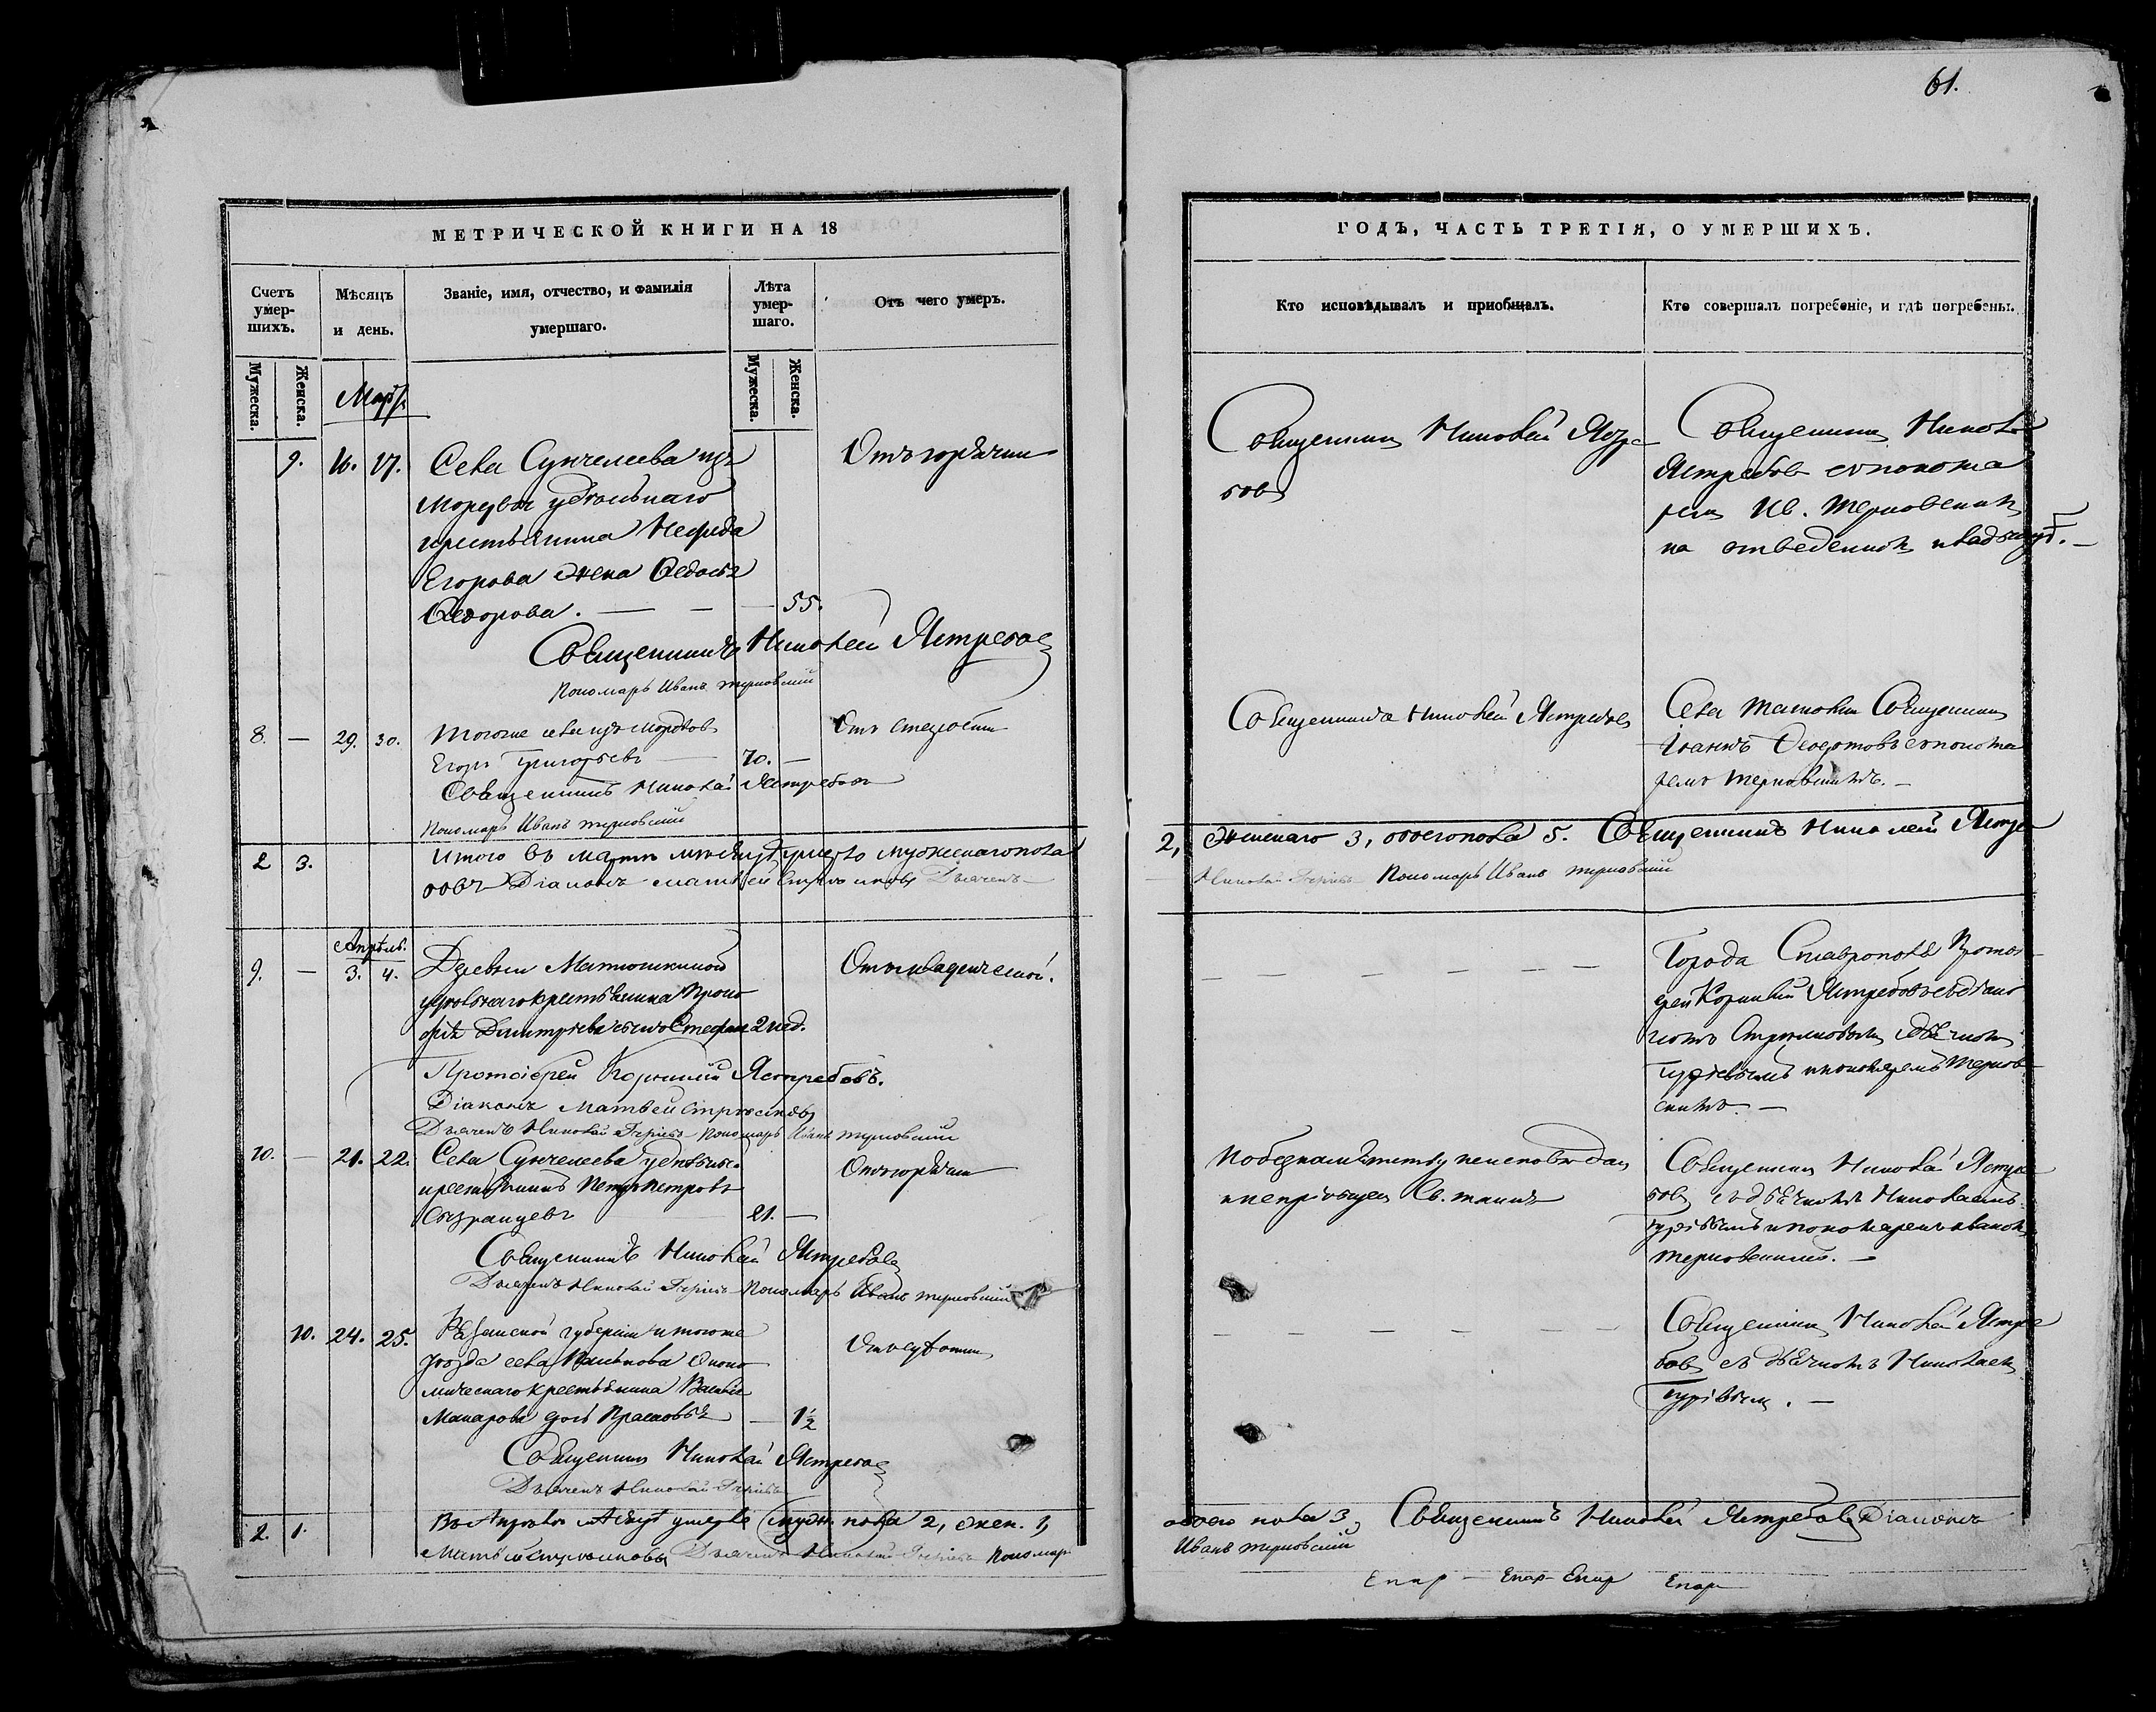 61.
МЕТРИЧЕСКОЙ КНИГИ НА 18
Счетъ умер-шихъ.
Мѣсяцъ и день.
Званіе, имя, отчество, и фамилія умершаго.
Лѣта умер-шаго.
Отъ чего умеръ.
Мужеска.
Женска.
Мужеска.
Женска.
Мартъ
9. 16. 17. Села Сунчелеева изъ
Мордвы удѣльнаго
крестьянина Нефеда
Егорова жена Федосья
Федорова. — — — 55.
Отъ горячки
Священникъ Николай Ястребовъ
Пономарь Иванъ Терновскій
8. — 29. 30. Тогоже села изъ мордвовъ
Егоръ Григорьевъ — 70. —
Отъ старости
Священникъ Николай Ястребовъ
Пономарь Иванъ Терновскій
2 3. Итого въ мартѣ мѣсяцѣ умерло мужескаго пола
Діаконъ Матвей Стрелковъ Дьячекъ
Апрѣль.
9. — 3. 4. Деревни Матюшкиной
крестьянина Проко
фія Дмитріева сынъ Стефанъ 2 нед.
Протоіерей Корнилій Ястребовъ.
Діаконъ Матвей Стрелковъ
Дьячекъ Николай Гурьевъ Пономарь Иванъ Терновскій
10. — 21. 22. Села Сунчелеева удѣльный
крестьянинъ Петръ Петровъ
Сызранцевъ 21. —
Отъ горячки
Священникъ Николай Ястребовъ
Дьячекъ Николай Гурьевъ Пономарь Иванъ Терновскій
10. 24. 25. Рязанской губерніи и тогоже
уѣзда села Эконо
мическаго крестьянина Василья
Макарова дочь Прасковья — 1½
Священникъ Николай Ястребовъ
Дьячекъ Николай Гурьевъ
2. 1. Въ Апрѣлѣ мѣсяцѣ умерло муж. пола 2, жен. 1,
Матвей Стрелковъ Дьячекъ Николай Гурьевъ Пономарь
ГОДЪ, ЧАСТЬ ТРЕТІЯ, О УМЕРШИХЪ.
Кто исповѣдывалъ и пріобщалъ.
Кто совершалъ погребеніе, и гдѣ погребены.
Священникъ Николай Ястре
бовъ
Священникъ Николай
Ястребовъ съ понома
ремъ Ив. Терновскимъ
на отведенномъ кладбищѣ. —
Священникъ Николай Ястребовъ
Села Священникъ
Іоаннъ Федотовъ съ понома
ремъ Терновскимъ. —
2, женскаго 3, обоего пола 5. Священникъ Николай Ястре
Николай Гурьевъ Пономарь Иванъ Терновскій
— — — — — —
Города Ставрополя Протоі
ерей Корнилій Ястребовъ съ діако
номъ Стрелковымъ дьячкомъ
Гурьевымъ и пономаремъ Тернов
скимъ. —
не исповѣданъ
и непріобщенъ Св. таинъ
Священникъ Николай Ястре
бовъ съ дьячкомъ Николаемъ
Гурьевымъ и пономаремъ Иваномъ
Терновскимъ. —
— — — — — —
Священникъ Николай Ястре
бовъ съ дьячкомъ Николаемъ
Гурьевымъ. —
обоего пола 3, Священникъ Николай Ястребовъ Діаконъ
Иванъ Терновскій